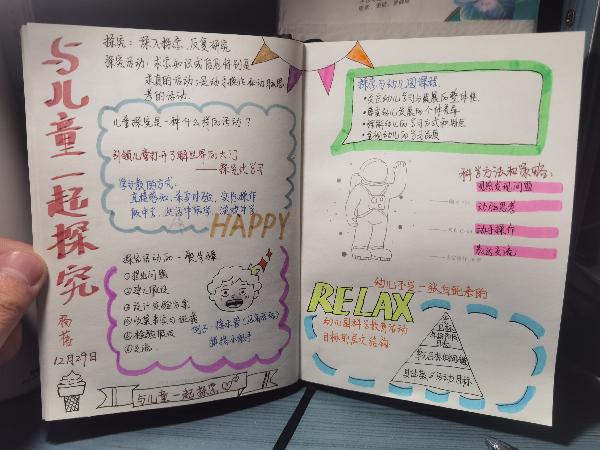 与儿童一起探究
12月29日
探究：探入探索、反复研究
探究活动：求索知识或信息特别是
求真的活动；是动手操作和动脑思
考的活动.
儿童探究是一种什么样的活动？
引领儿童打开了解世界的大门
——探究式学习
学习教的方式：
直接感知、亲身体验、实际操作
做中学、生活中学、游戏中学
HAPPY
探究活动的一般步骤
①提出问题
②建立假设
③设计实验方案
④收集事实与证据
⑤检验假设
⑥交流
与儿童一起探究
探究与幼儿园课程
•关注幼儿学习与发展的整体性
•尊重幼儿发展的个体差异
•理解幼儿的学习方式和特点
•重视幼儿的学习品质
科学方法和策略：
观察发现问题
动脑思考
动手操作
表达交流
RELAX
幼儿园科学教育活动
目标的层次结构